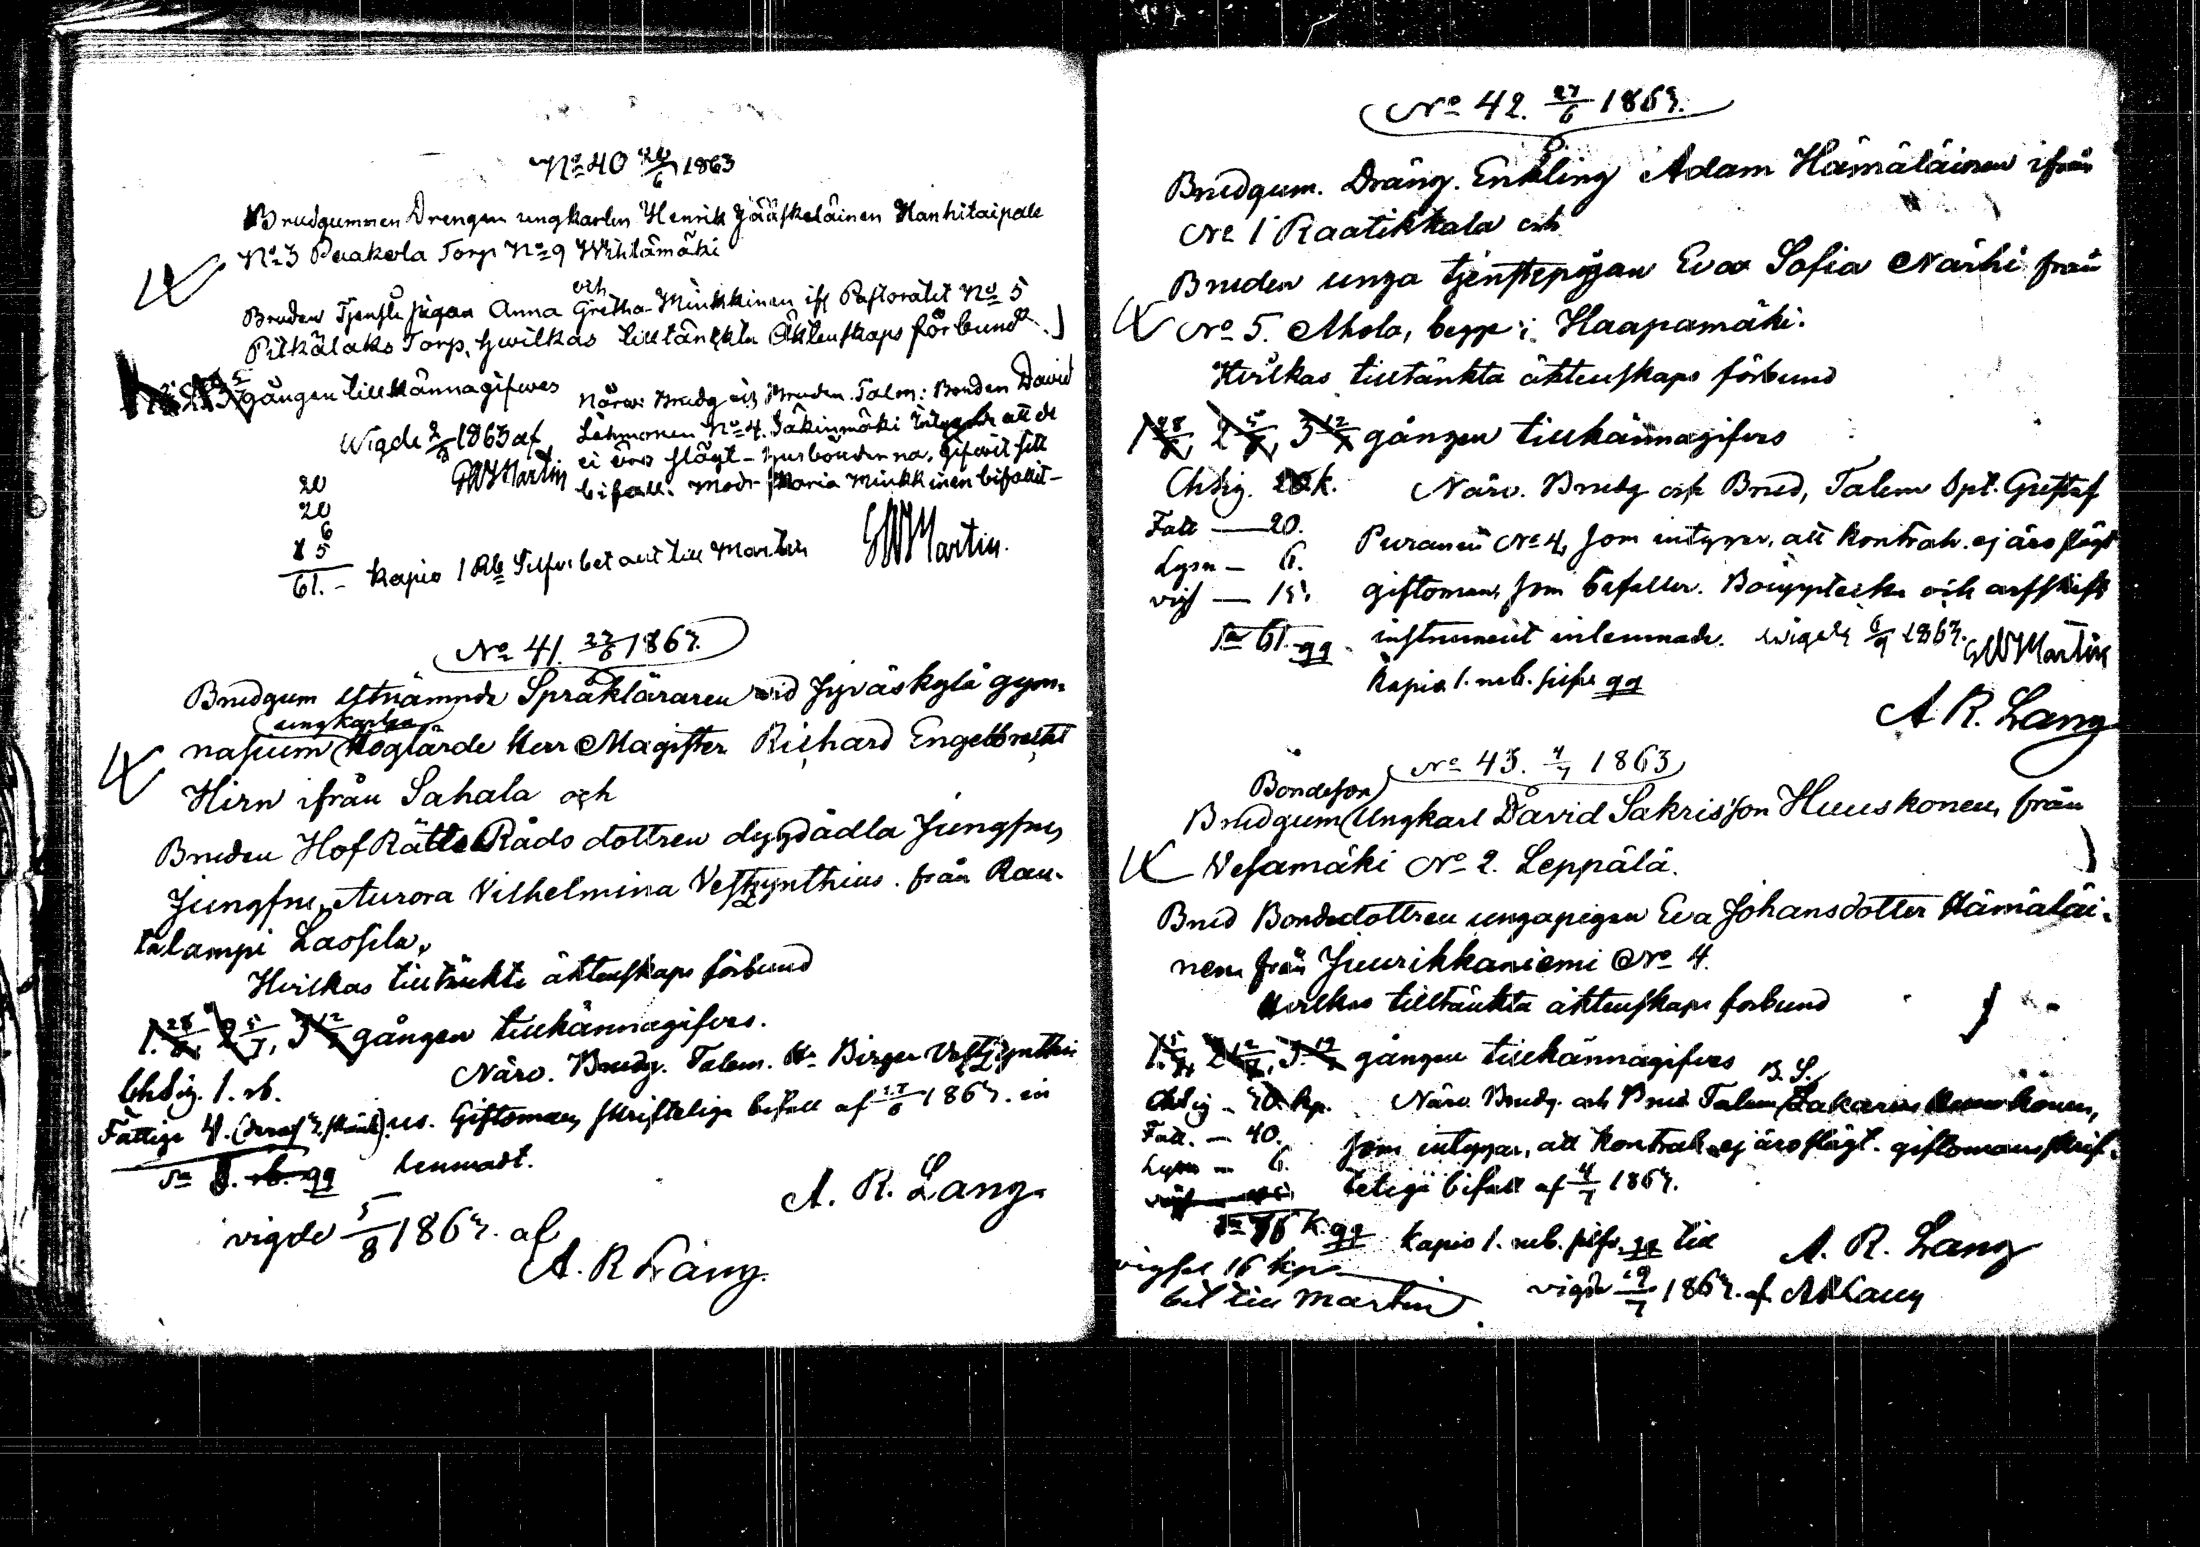 No 40 26/6 1863
Brudgummen Drengen ungkarlen Henrik Jääskeläinen Hanhitaipale
No 3 Paakola Torp No 9 Wihtämäki
och
Bruden Tjenste pigan Anna Gretha Minkkinen ifr Pastoratet No 5
Pitkälaks Torp, hwilkas tilltänkta Äktenskaps förbund
gången tillkännagifwes
Närv: Brudg och Bruden. Talm: Bonden David
Lehmonen No 4. Säkinmäki intygade att de
ei äro slägt - husbönderna, gifwit sitt
bifall. Modr Maria Minkkinen bifallit -
Wigde 2/8 1863 af
GWMartin
20
20
6
15
61. - Kapio 1 Rb Silfver bet allt till Martin
GWMartin.
No 41. 27/6 1863.
Brudgum Utnämnde Språkläraren vid Jyväskylä gym-
ungkarlen
nasium Höglärde Herr Magister Richard Engelbrecht
Hirn ifrån Sahala och
Bruden Hof Rätts Råds dottren dygdädla Jungfru,
Jungfru, Aurora Vilhelmina Vestzynthius från Rau-
talampi Lassila,
Hvilkas tilltänkta äktenskaps förbund
1. 28/6, 2 5/7, 3 12/7 gången tillkännagifves.
Chdig. 1. rb.
Närv. Brudg. Talem. Hr Birger Vestzynthi-
Fattige 4. us. Giftomans skriftliga bifall af 27/6 1863. in
lemnadt.
Sa rb. gg
A. R. Lang.
vigde 5/8 1863. af
A. R Lang.
No 42. 27/6 1863.
Brudgum. Dräng. Enkling Adam Hämäläinen ifrån
No 1 Raatikkala och
Bruden unga tjenstepigan Eva Sofia Närhi från
No 5. Ahola, begge i Haapamäki.
Hvilkas tilltänkta äktenskaps förbund
1 28/6, 2 5/7, 3 12/7 gången tillkännagifves
Chdig. 20 k. Närv. Brudg och Brud, Talem Spt. Gustaf
Fatt — 20. Puranen No 4, som intygar, att kontrah. ej äro slägt
Lysn — 6.
vigs — 15. giftoman, som bifaller. Bouppteckn och arfskifts
Sa 61. gg. instrument inlemnade. Wigde 6/9 1863. GWMartin
Kapio 1. rub. silfr gg
A R. Lang
No 43. 4/7 1863
Bondeson
Brudgum Ungkarl David Sakrisson Huuskonen, från
Vesamäki No 2. Leppälä.
Brud Bondedottren ungapigan Eva Johansdotter Hämäläi-
nen från Juurikkaniemi No 4.
Hvilkas tilltänkta äktenskaps förbund
1. 5/7, 2 12/7, 3. 19/7 gången tillkännagifves
B. S.
Chdig - 40. kp. Närv. Brudg. och Brud Talem Zakarias Huuskonen,
Fatt. — 40. som intygar, att kontrah. ej äro slägt. giftomans skrif-
Lysn — 6.
teliga bifall af 4/7 1863.
Sa 86 k. gg Kapio 1. rub. silfr. gg till
A. R. Lang
vigsel 16 kp
bet till Martin
vigde 19/7 1863. af A R Lang